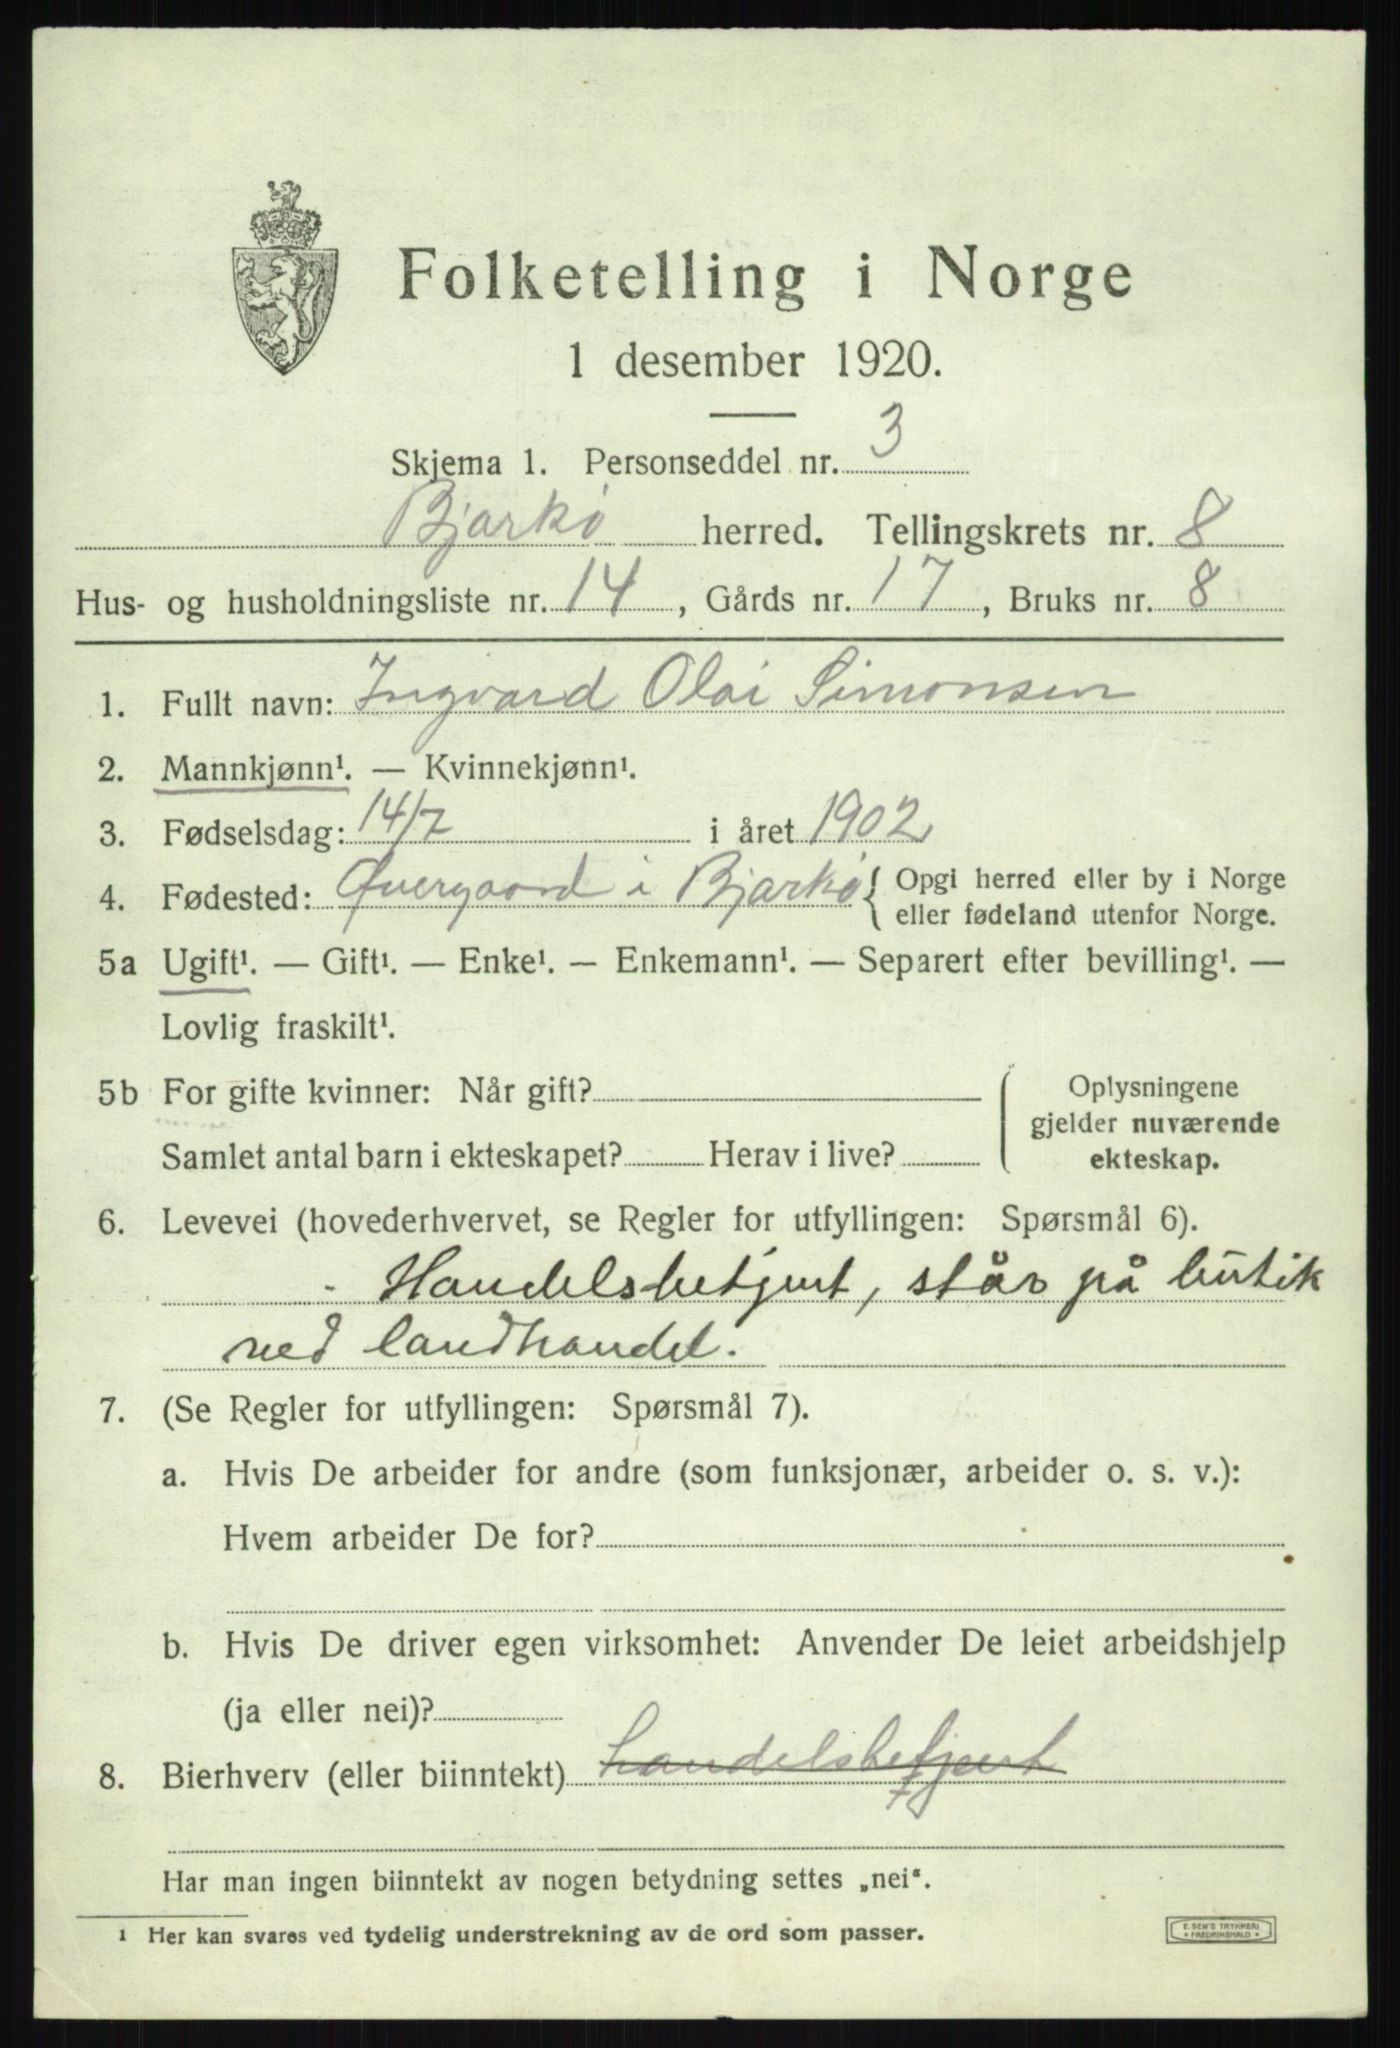 Folketelling i Norge
1 desember 1920.
Skjema 1. Personseddel nr. 3
Bjarkö herred. Tellingskrets nr. 8
Hus- og husholdningsliste nr. 14, Gårds nr. 17, Bruks nr. 8
1. Fullt navn: Ingvard Olai Simonsen
2. Mannkjønn¹. — Kvinnekjønn¹.
3. Fødselsdag: 14/7 i året 1902
4. Fødested: Øvergaard i Bjarkö { Opgi herred eller by i Norge
eller fødeland utenfor Norge.
5a Ugift¹. — Gift¹. — Enke¹. — Enkemann¹. — Separert efter bevilling¹. —
Lovlig fraskilt¹.
5b For gifte kvinner: Når gift?
Samlet antal barn i ekteskapet? Herav i live?
Oplysningene
gjelder nuværende
ekteskap.
6. Levevei (hovederhvervet, se Regler for utfyllingen: Spørsmål 6).
Handelsbetjent, står på butik
ved landhandel.
7. (Se Regler for utfyllingen: Spørsmål 7).
a. Hvis De arbeider for andre (som funksjonær, arbeider o. s. v.):
Hvem arbeider De for?
b. Hvis De driver egen virksomhet: Anvender De leiet arbeidshjelp
(ja eller nei)?
8. Bierhverv (eller biinntekt) handelsbetjent
Har man ingen biinntekt av nogen betydning settes „nei“.
1 Her kan svares ved tydelig understrekning av de ord som passer.
E. SEM'S TRYKKERI
FREDRIKSHALD